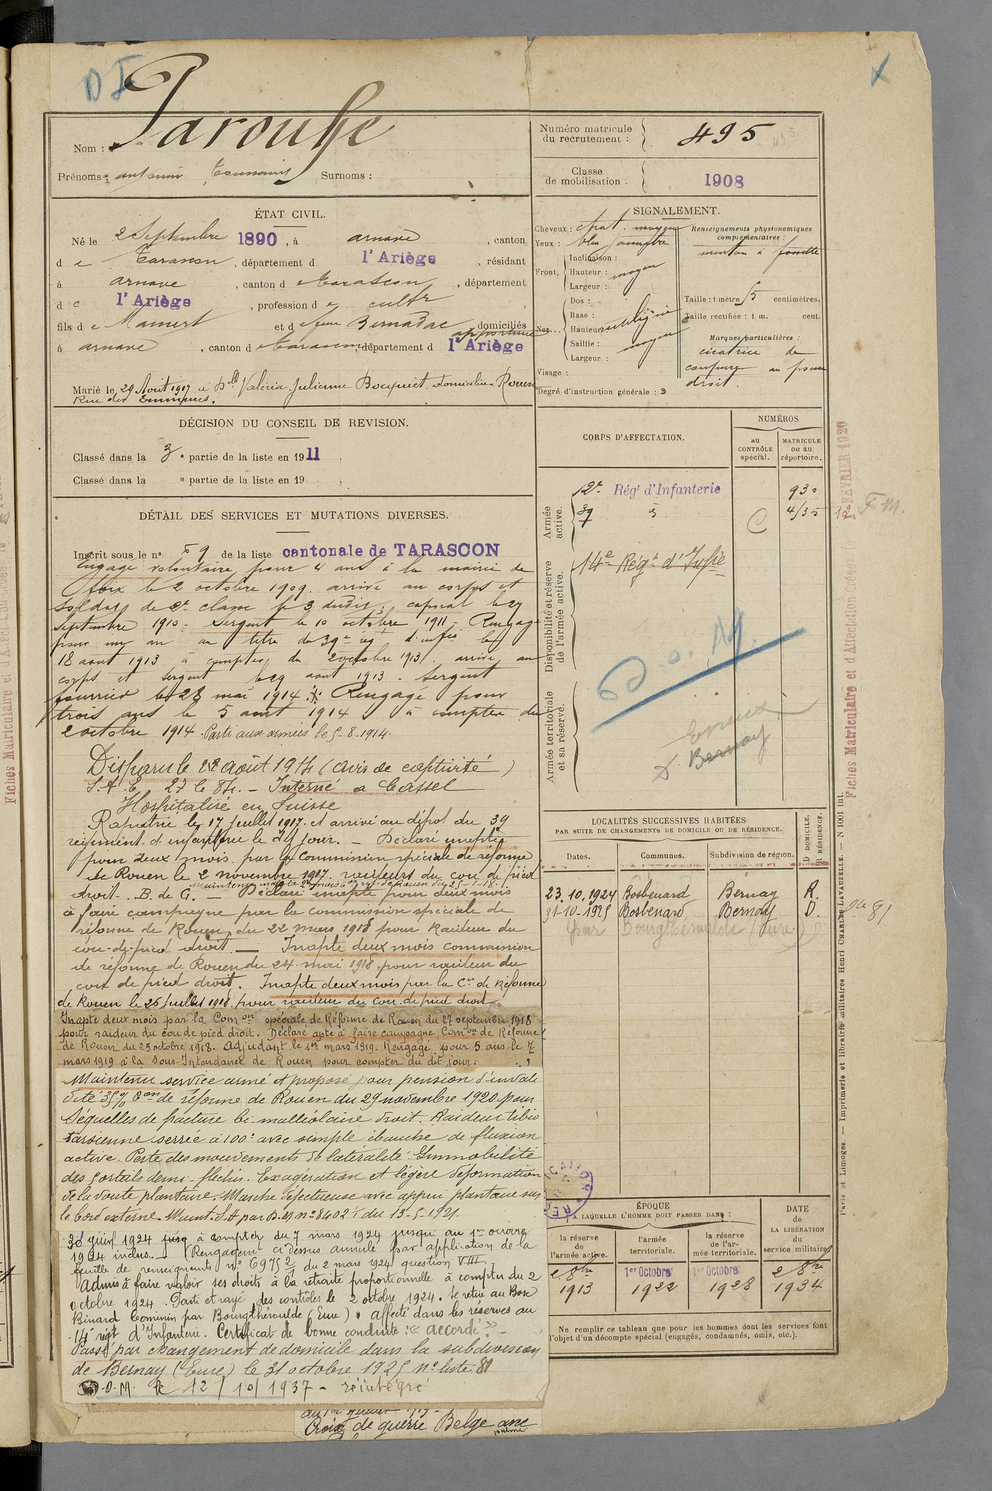 D I
X
Nom : Parousse
Prénoms : antonin Toussaint Surnoms :
Numéro matricule du recrutement : 495
Classe de mobilisation : 1908
ÉTAT CIVIL.
Né le 2 Septembre 1890, à arnave, canton
d e Tarascon, département d l'Ariège, résidant
à arnave, canton d e Tarascon, département
d e l'Ariège, profession d e cultr
fils d e Mamert et d e feue Bernadac domiciliés
à arnave, canton d e Tarascon, département d l'Ariège
Marié le 29 Août 1917 à Dlle Valérie Julienne Bocquet, domiciliée Rouen
Rue des Emmurées.
SIGNALEMENT.
Cheveux : chat. moyen
Yeux :
Front,
Inclinaison :
Hauteur : moyen
Largeur :
Nez
Dos :
Base :
Hauteur
Saillie : moyen
Largeur :
Visage :
Renseignements physionomiques complémentaires :
menton à fossette
Taille : 1 mètre 5 centimètres.
Taille rectifiée : 1 m. cent.
Marques particulières :
cicatrice de
coupure au pouce
droit.
Degré d'instruction générale : 3
DÉCISION DU CONSEIL DE REVISION.
Classé dans la 3e partie de la liste en 1911.
Classé dans la e partie de la liste en 19 .
DÉTAIL DES SERVICES ET MUTATIONS DIVERSES.
Inscrit sous le n° 59 de la liste cantonale de TARASCON
Engagé volontaire pour 4 ans à la mairie de
foix le 2 octobre 1909. arrivé au corps et
soldat de 2e classe le 3 dudit, caporal le 29
septembre 1910. Sergent le 10 octobre 1911. Rengagé
pour un an au titre du 39e rég. d'infie le
18 aout 1913 à compter du 2 octobre 1913. arrivé au
corps et sergent le 29 aout 1913. Sergent
fourrier le 23 mai 1914. Rengagé pour
trois ans le 5 août 1914 à compter du
2 octobre 1914. Parti aux armées le 5.8.1914.
Disparu le 22 août 1914 (avis de captivité)
Interné à Cassel
Hospitalisé en Suisse
Rapatrié le 17 juillet 1917 et arrivé au dépôt du 39
régiment d'infanterie le dit jour. - Déclaré inapte
pour deux mois par la Commission spéciale de réforme
de Rouen le 2 novembre 1917. raideurs du cou de pied
droit. B. de G. - Déclaré inapte pour deux mois
à faire campagne par la commission spéciale de
réforme de Rouen du 22 mars 1918 pour raideur du
cou-de-pied droit. — Inapte deux mois commission
de réforme de Rouen du 24 mai 1918 pour raideur du
cou de pied droit. Inapte deux mois par la Con de Réforme
de Rouen le 26 juillet 1918 pour raideur du cou de pied droit
Inapte deux mois par la Comon spéciale de Réforme de Rouen du 27 septembre 1918
pour raideur du cou de pied droit. Déclaré apte à faire campagne, Comon de Réforme
de Rouen du 25 octobre 1918. Adjudant le 1er mars 1919. Rengagé pour 5 ans le 7
mars 1919 à la Sous-Intendance de Rouen pour compter du dit jour.
Maintenu service armé et proposé pour pension d'invali
dité 35% Con de réforme de Rouen du 29 novembre 1920 pour
séquelles de fracture bi malléolaire droit. Raideur tibio
tarsienne serrée à 100° avec simple ébauche de fluxion
active. Perte des mouvements de latéralité. Immobilité
des orteils demi-fléchis. Exagération et légère déformation
de la voute plantaire. Marche défectueuse avec appui plantaire sur
le bord externe. Maint. S.A par D.M n° 8402 du 13-5-1921.
30 juin 1924 jusq à compter du 7 mars 1924 jusqu'au 1er octobre
1924 inclus. Rengagement ci-dessus annulé par application de la
feuille de renseignements n° 6975 du 2 mars 1924 question VIII.
Admis à faire valoir ses droits à la retraite proportionnelle à compter du 2
octobre 1924. Parti et rayé des contrôles le 2 octobre 1924. Se retire au Bosc
Bénard Commin par Bourgthéroulde (Eure). affecté dans les réserves au
14e régt d'Infanterie. Certificat de bonne conduite "accordé".
Passé par changement de domicile dans la subdivision
de Bernay (Eure) le 31 octobre 1925 n° liste 81
D.M. le 12/10/1937 - réintégré
Croix de guerre Belge
CORPS D'AFFECTATION.
NUMÉROS
au CONTRÔLE spécial.
MATRICULE ou au répertoire.
Armée active.
12e Régt d'Infanterie 930
39 4/35
14e Régt d'Infie
Disponibilité et réserve de l'armée active.
Armée territoriale et sa réserve.
Evreux
D. Bernay
LOCALITÉS SUCCESSIVES HABITÉES
PAR SUITE DE CHANGEMENTS DE DOMICILE OU DE RÉSIDENCE.
Dates. Communes. Subdivision de région. D. DOMICILE. R. RÉSIDENCE.
23.10.1924 Bosbenard Bernay R.
31-10-1925 Bosbenard, Bernay D.
par Bourgtheroulde (Eure)
ÉPOQUE
À LAQUELLE L'HOMME DOIT PASSER DANS :
la réserve de l'armée active.
l'armée territoriale.
la réserve de l'armée territoriale.
DATE DE LA LIBÉRATION du service militaire.
2 8bre 1913
1er Octobre 1922
1er Octobre 1928
2 8bre 1934
Ne remplir ce tableau que pour les hommes dont les services font
l'objet d'un décompte spécial (engagés, condamnés, omis, etc.).
Paris et Limoges. — Imprimerie et librairie militaires Henri CHARLES-LAVAUZELLE.
Fiches Matriculaire et d'Affectation Créées le 12 FÉVRIER 1920
F.M.